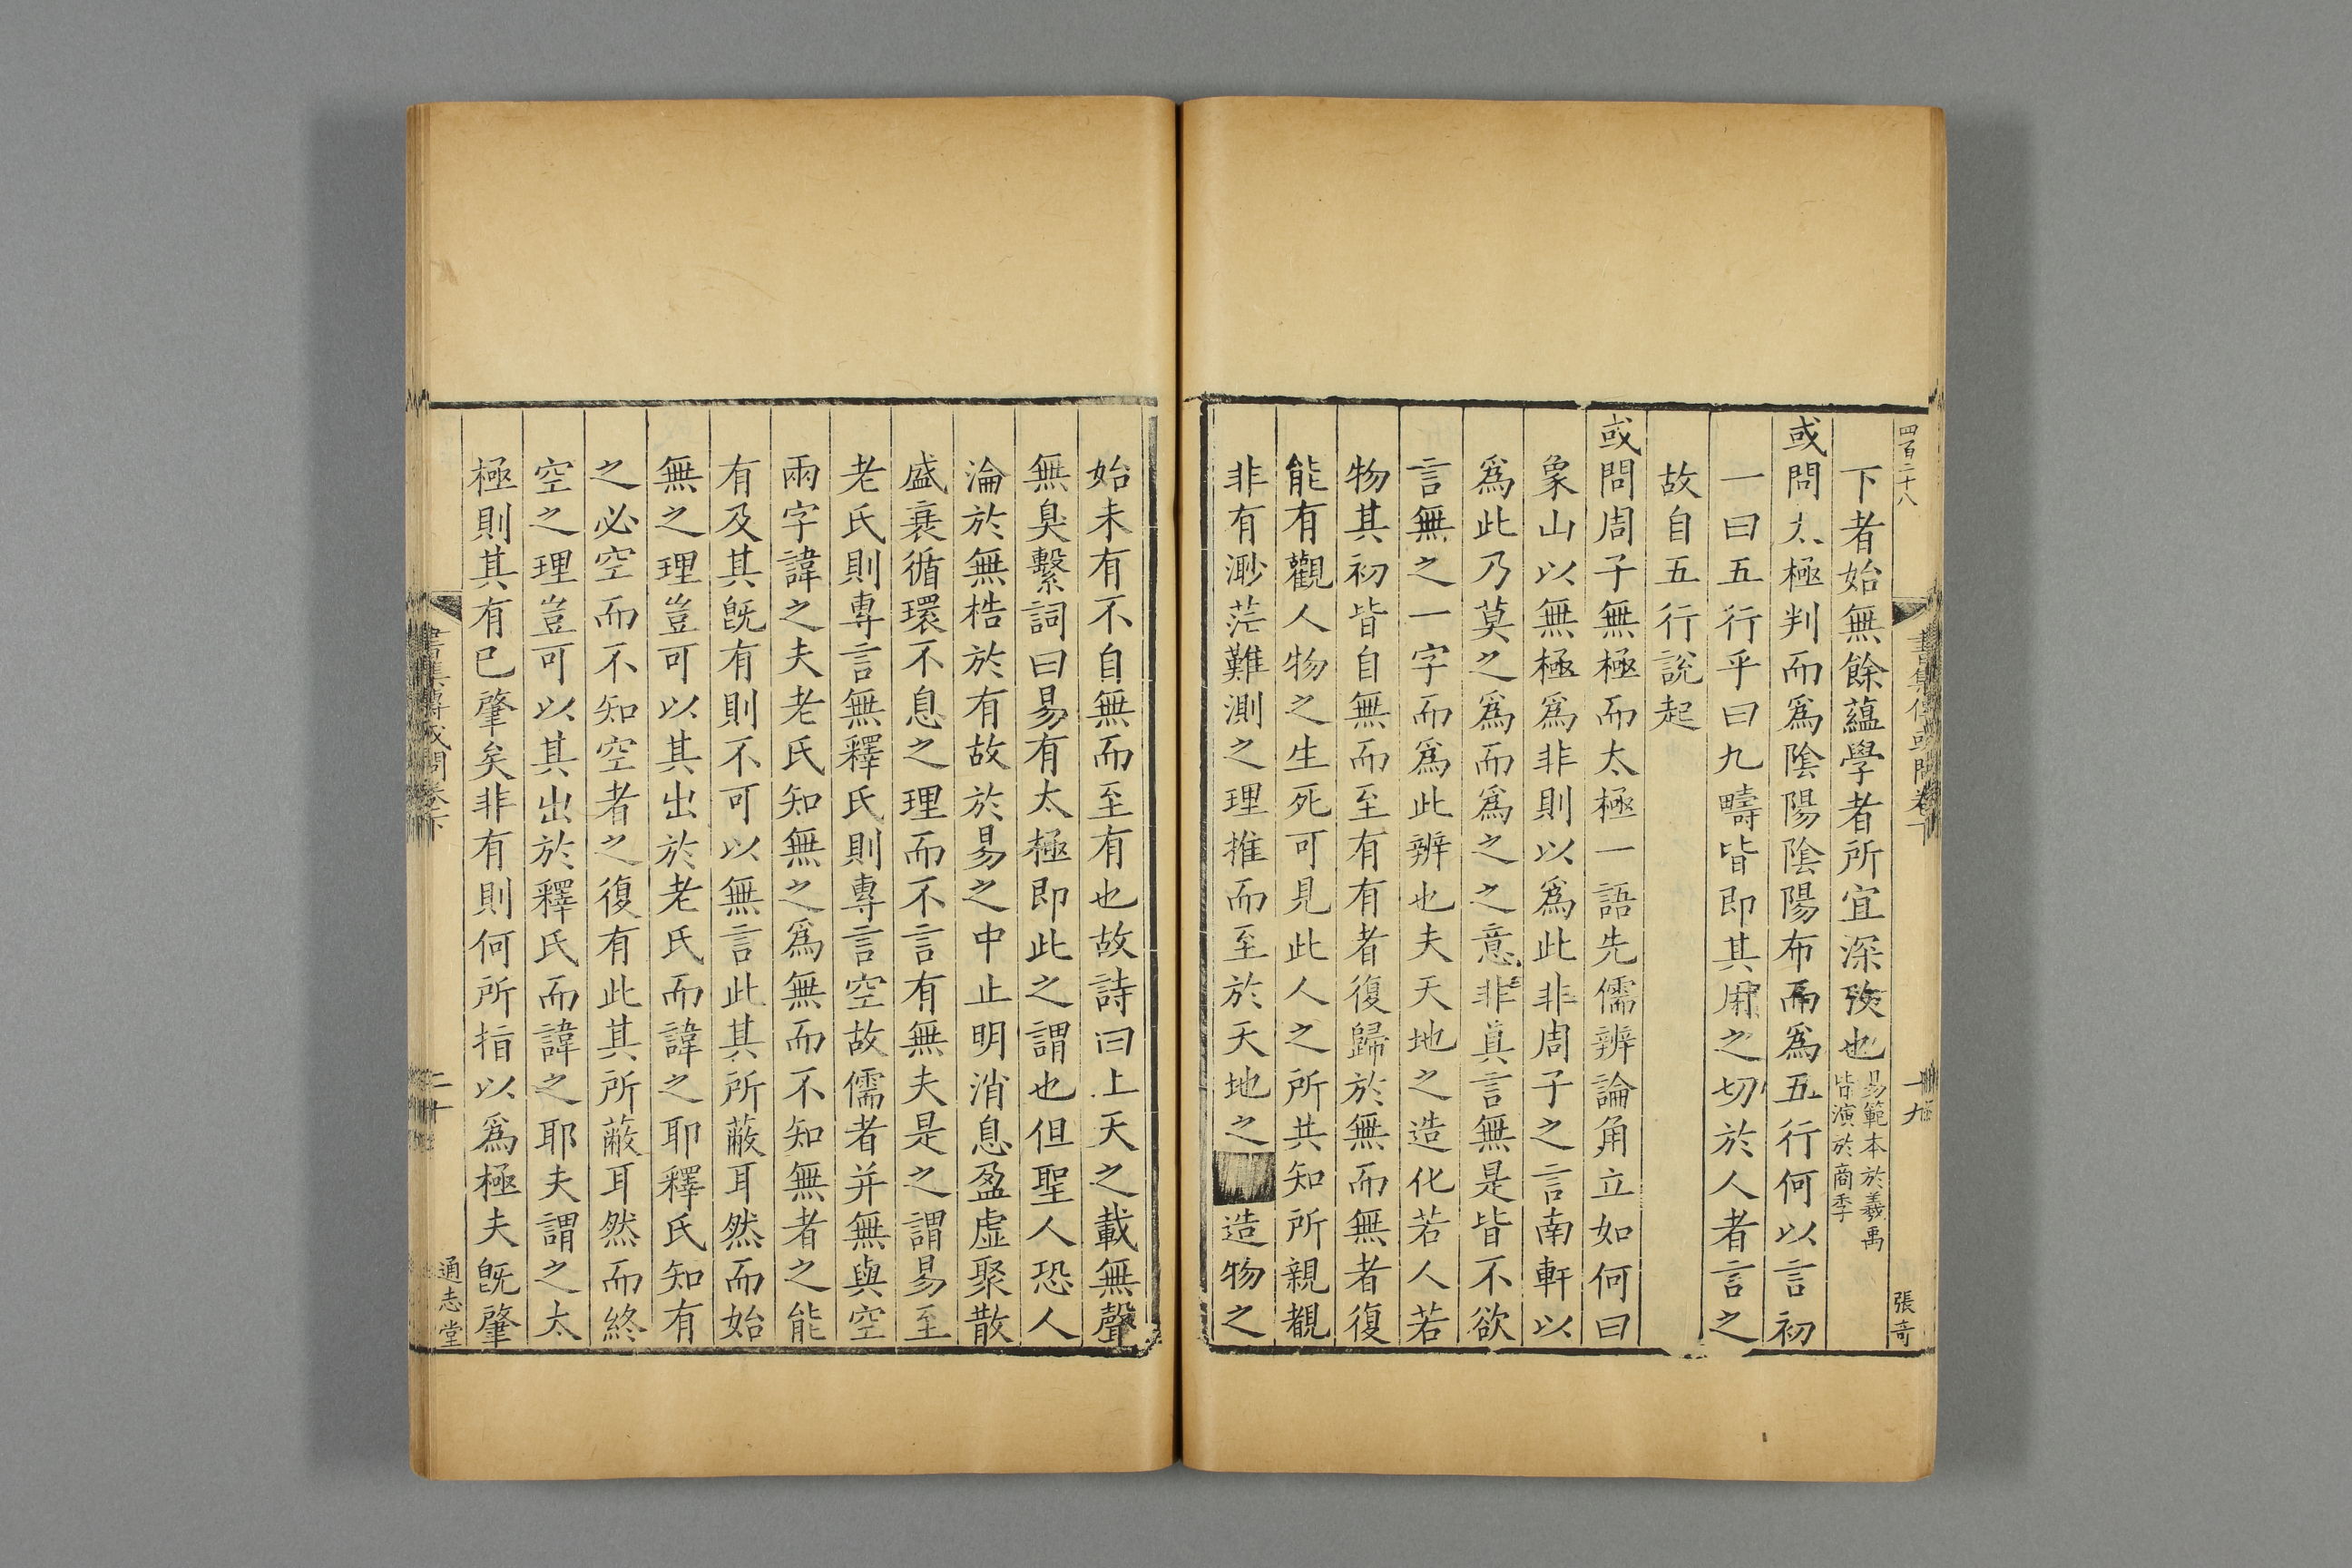 四百二十八
張竒
下者始無餘蘊學者所宜深攷也易範本於羲禹皆演於商季
或問太極判而爲陰陽陰陽布而爲五行何以言初
一曰五行乎曰九疇皆即其用之切於人者言之
故自五行說起
或問周子無極而太極一語先儒辨論角立如何曰
象山以無極爲非則以爲此非周子之言南軒以
爲此乃莫之爲而爲之之意非真言無是皆不欲
言無之一字而爲此辨也夫天地之造化若人若
物其初皆自無而至有有者復歸於無而無者復
能有觀人物之生死可見此人之所共知所親覩
非有渺茫難測之理推而至於天地之造物之
始未有不自無而至有也故詩曰上天之載無聲
無臭繫詞曰易有太極即此之謂也但聖人恐人
淪於無梏於有故於易之中止明消息盈虛聚散
盛衰循環不息之理而不言有無夫是之謂易至
老氏則專言無釋氏則專言空故儒者并無與空
兩字諱之夫老氏知無之爲無而不知無者之能
有及其旣有則不可以無言此其所蔽耳然而始
無之理豈可以其出於老氏而諱之耶釋氏知有
之必空而不知空者之復有此其所蔽耳然而終
空之理豈可以其出於釋氏而諱之耶夫謂之太
極則其有已肇矣非有則何所指以爲極夫旣肇
書集傳或問卷下
二十
通志堂